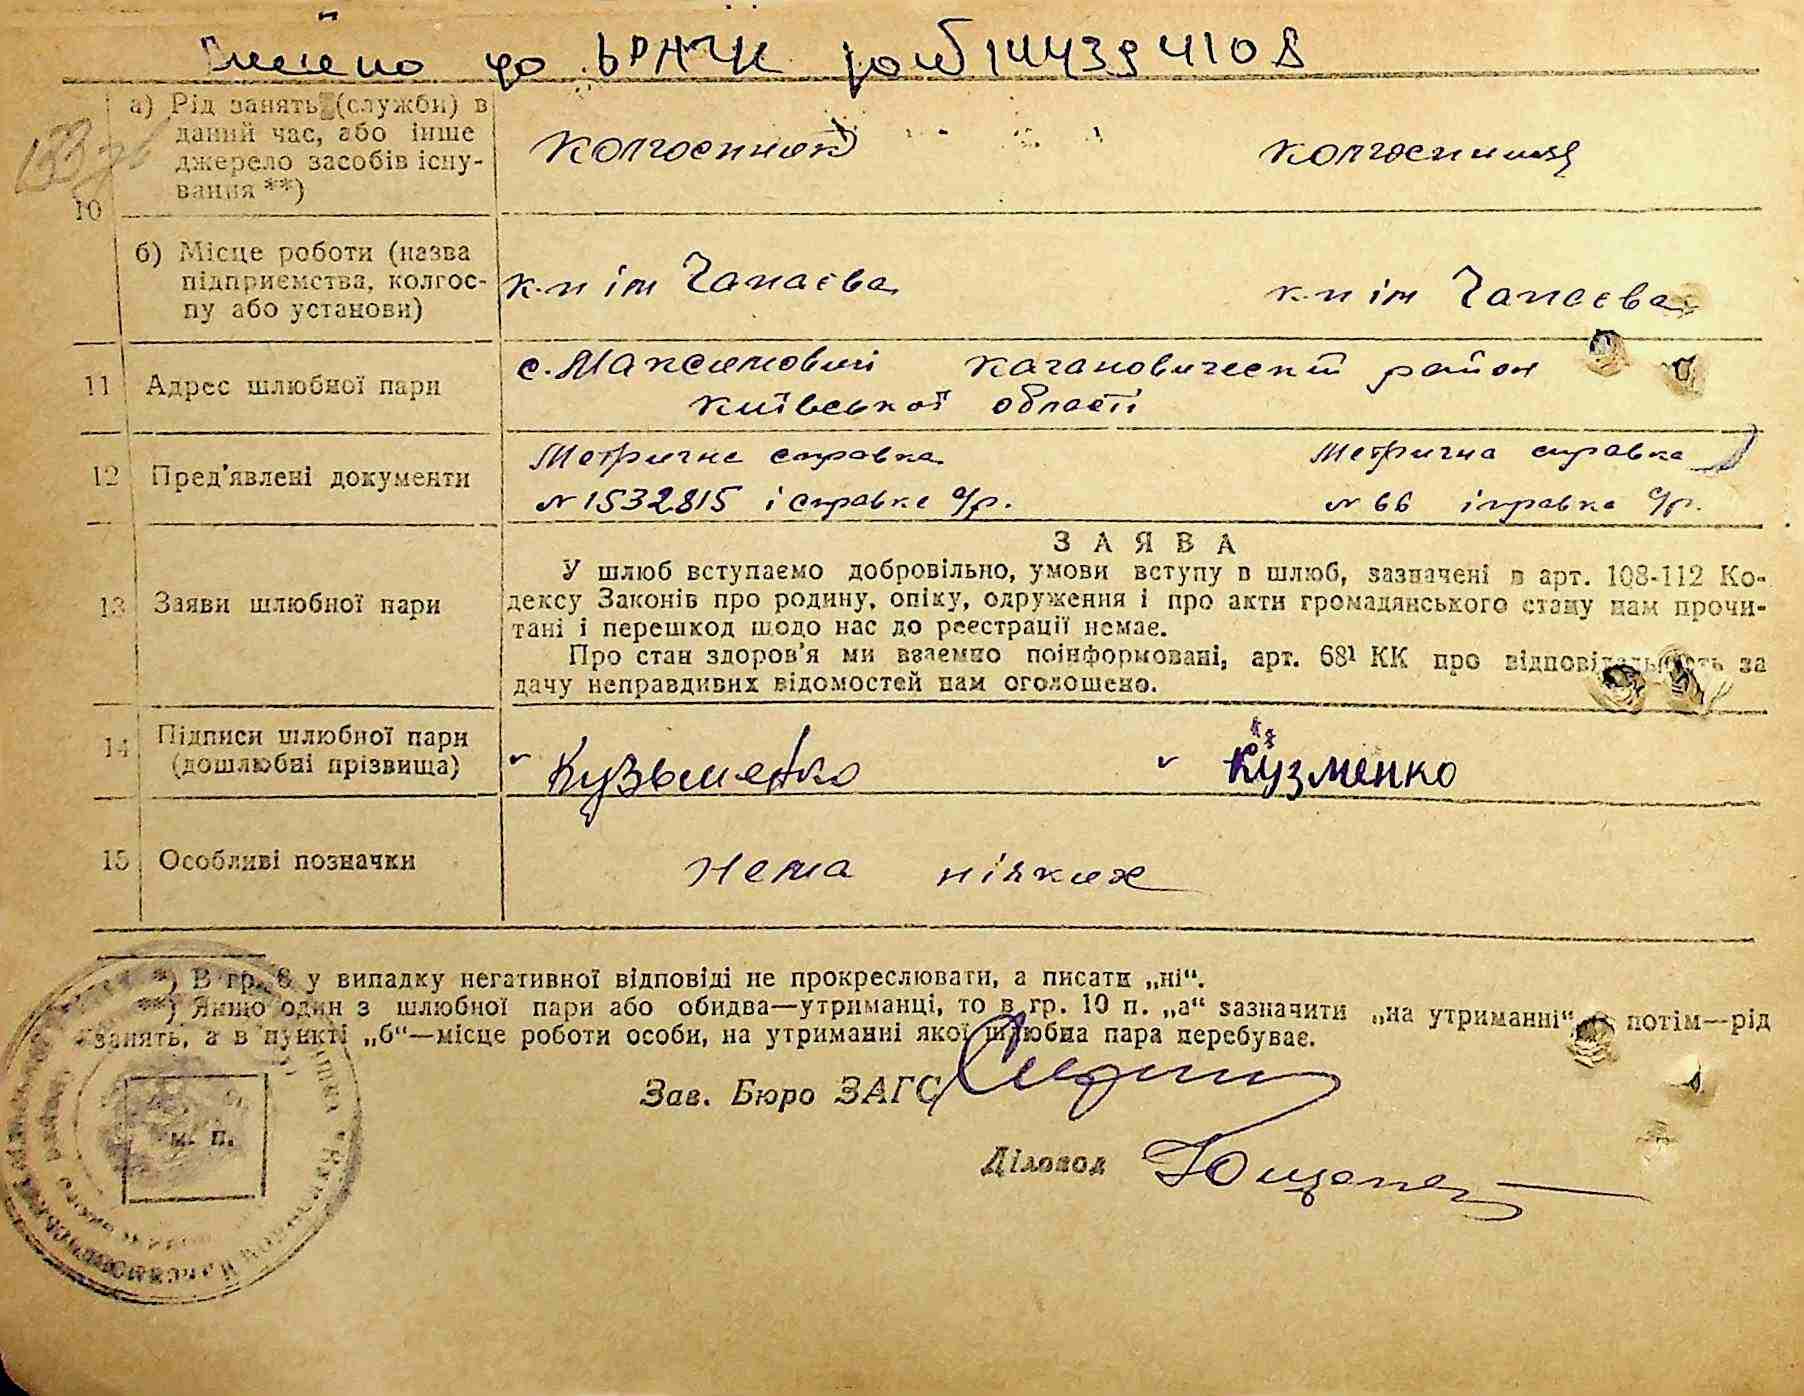 до ДРАЦС
а) Рід занять (служби) в
даний час, або інше
джерело засобів існу-
вання **)
10
колгоспник колгоспниця
б) Місце роботи (назва
підприємства, колгос-
пу або установи)
к-п ім Чапаєва к-п ім Чапаєва
11 Адрес шлюбної пари
с. Максимовичі Кагановический район
Київської області
12 Пред'явлені документи
Метрична справка Метрична справка
№ 1532815 і справка с/р. № 66 і справка с/р.
13 Заяви шлюбної пари
ЗАЯВА
У шлюб вступаємо добровільно, умови вступу в шлюб, зазначені в арт. 108-112 Ко-
дексу Законів про родину, опіку, одруження і про акти громадянського стану нам прочи-
тані і перешкод щодо нас до реєстрації немає.
Про стан здоров'я ми взаємно поінформовані, арт. 68¹ КК про відповідальність за
дачу неправдивих відомостей нам оголошено.
14 Підписи шлюбної пари
(дошлюбні прізвища)
Кузьменко Кузменко
15 Особливі позначки
нема ніяких
*) В гр. 6 у випадку негативної відповіді не прокреслювати, а писати „ні“.
**) Якщо один з шлюбної пари або обидва—утриманці, то в гр. 10 п. „а“ зазначити „на утриманні“, а потім—рід
занять, а в пункті „б“—місце роботи особи, на утриманні якої шлюбна пара перебуває.
Зав. Бюро ЗАГС
Діловод
м. п.